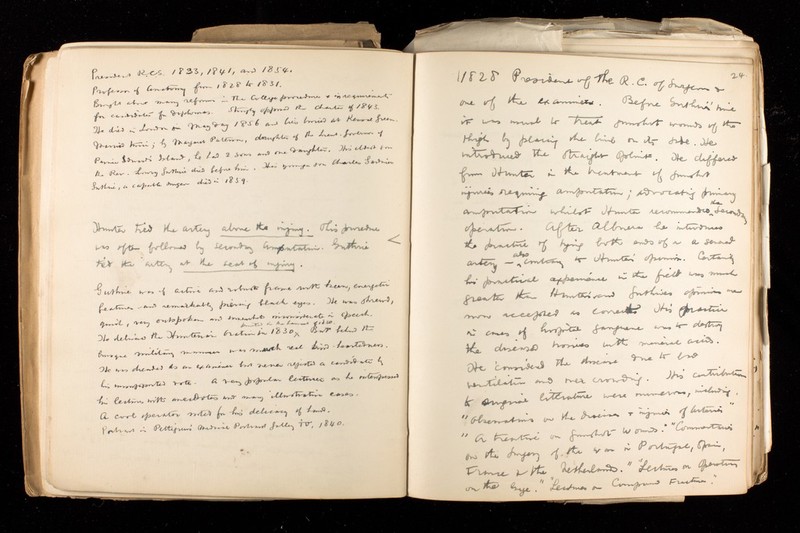 President R.C.S. 1833, 1841, and 1854.
Professor of Anatomy from 1828 to 1831.
Brought about many reforms in the College procedure & in requirements
for candidates for diplomas. Strongly opposed the charter of 1843.
He died in London on May Day 1856 and lies buried at Kensal Green.
Married twice; by Margaret Patterson, daughter of the Lieut. Governor of
Prince Edward's Island, he had 2 sons and one daughter. His eldest son
the Rev. Lowry Guthrie died before him. His younger son Charles Gardiner
Guthrie, a capable surgeon died in 1859.
Hunter tied the artery above the injury. This procedure
was often followed by secondary amputation. Guthrie
tied the artery at the seat of injury.
Guthrie was of active and robust frame with keen, energetic
features and remarkably piercing black eyes. He was shrewd,
quick, very outspoken and somewhat inconsiderate in speech.
He delivered the Hunterian Oration in 1830, But behind the
brusque military manner was much real kind-heartedness.
He was dreaded as an examiner but never rejected a candidate by
his unsupported vote. A very popular lecturer as he interspersed
his lectures with anecdotes and many illustrative cases.
A cool operator noted for his delicacy of hand.
Portrait in Pettigrew's Medical Portrait Gallery 1840.
24
1828 President of the R.C. of Surgeons &
one of the examiners. Before Guthrie's time
it was usual to treat gunshot wounds of the
thigh by placing the limb on its side. He
introduced the straight splint. He differed
from Hunter in the treatment of gunshot
injuries requiring amputation; advocating primary
amputation whilst Hunter recommended the secondary
operation. After he introduced
the practice of tying both ends of a wounded
artery — also contrary to Hunter's opinion. Certainly
his practical experience in the field was much
greater than Hunter's and Guthrie's opinions are
now accepted as correct. His practice
in cases of hospital gangrene was to destroy
the diseased tissues with mineral acids.
He considered the disease due to bad
ventilation and over crowding. His contributions
to original literature were numerous, including.
"Observations on the diseases & injuries of arteries"
"A treatise on Gunshot Wounds." "Commentaries
on the Surgery of the war in Portugal, Spain,
France & the Netherlands." "Lectures on Operations
on the Eye." "Lectures on Compound Fractures."